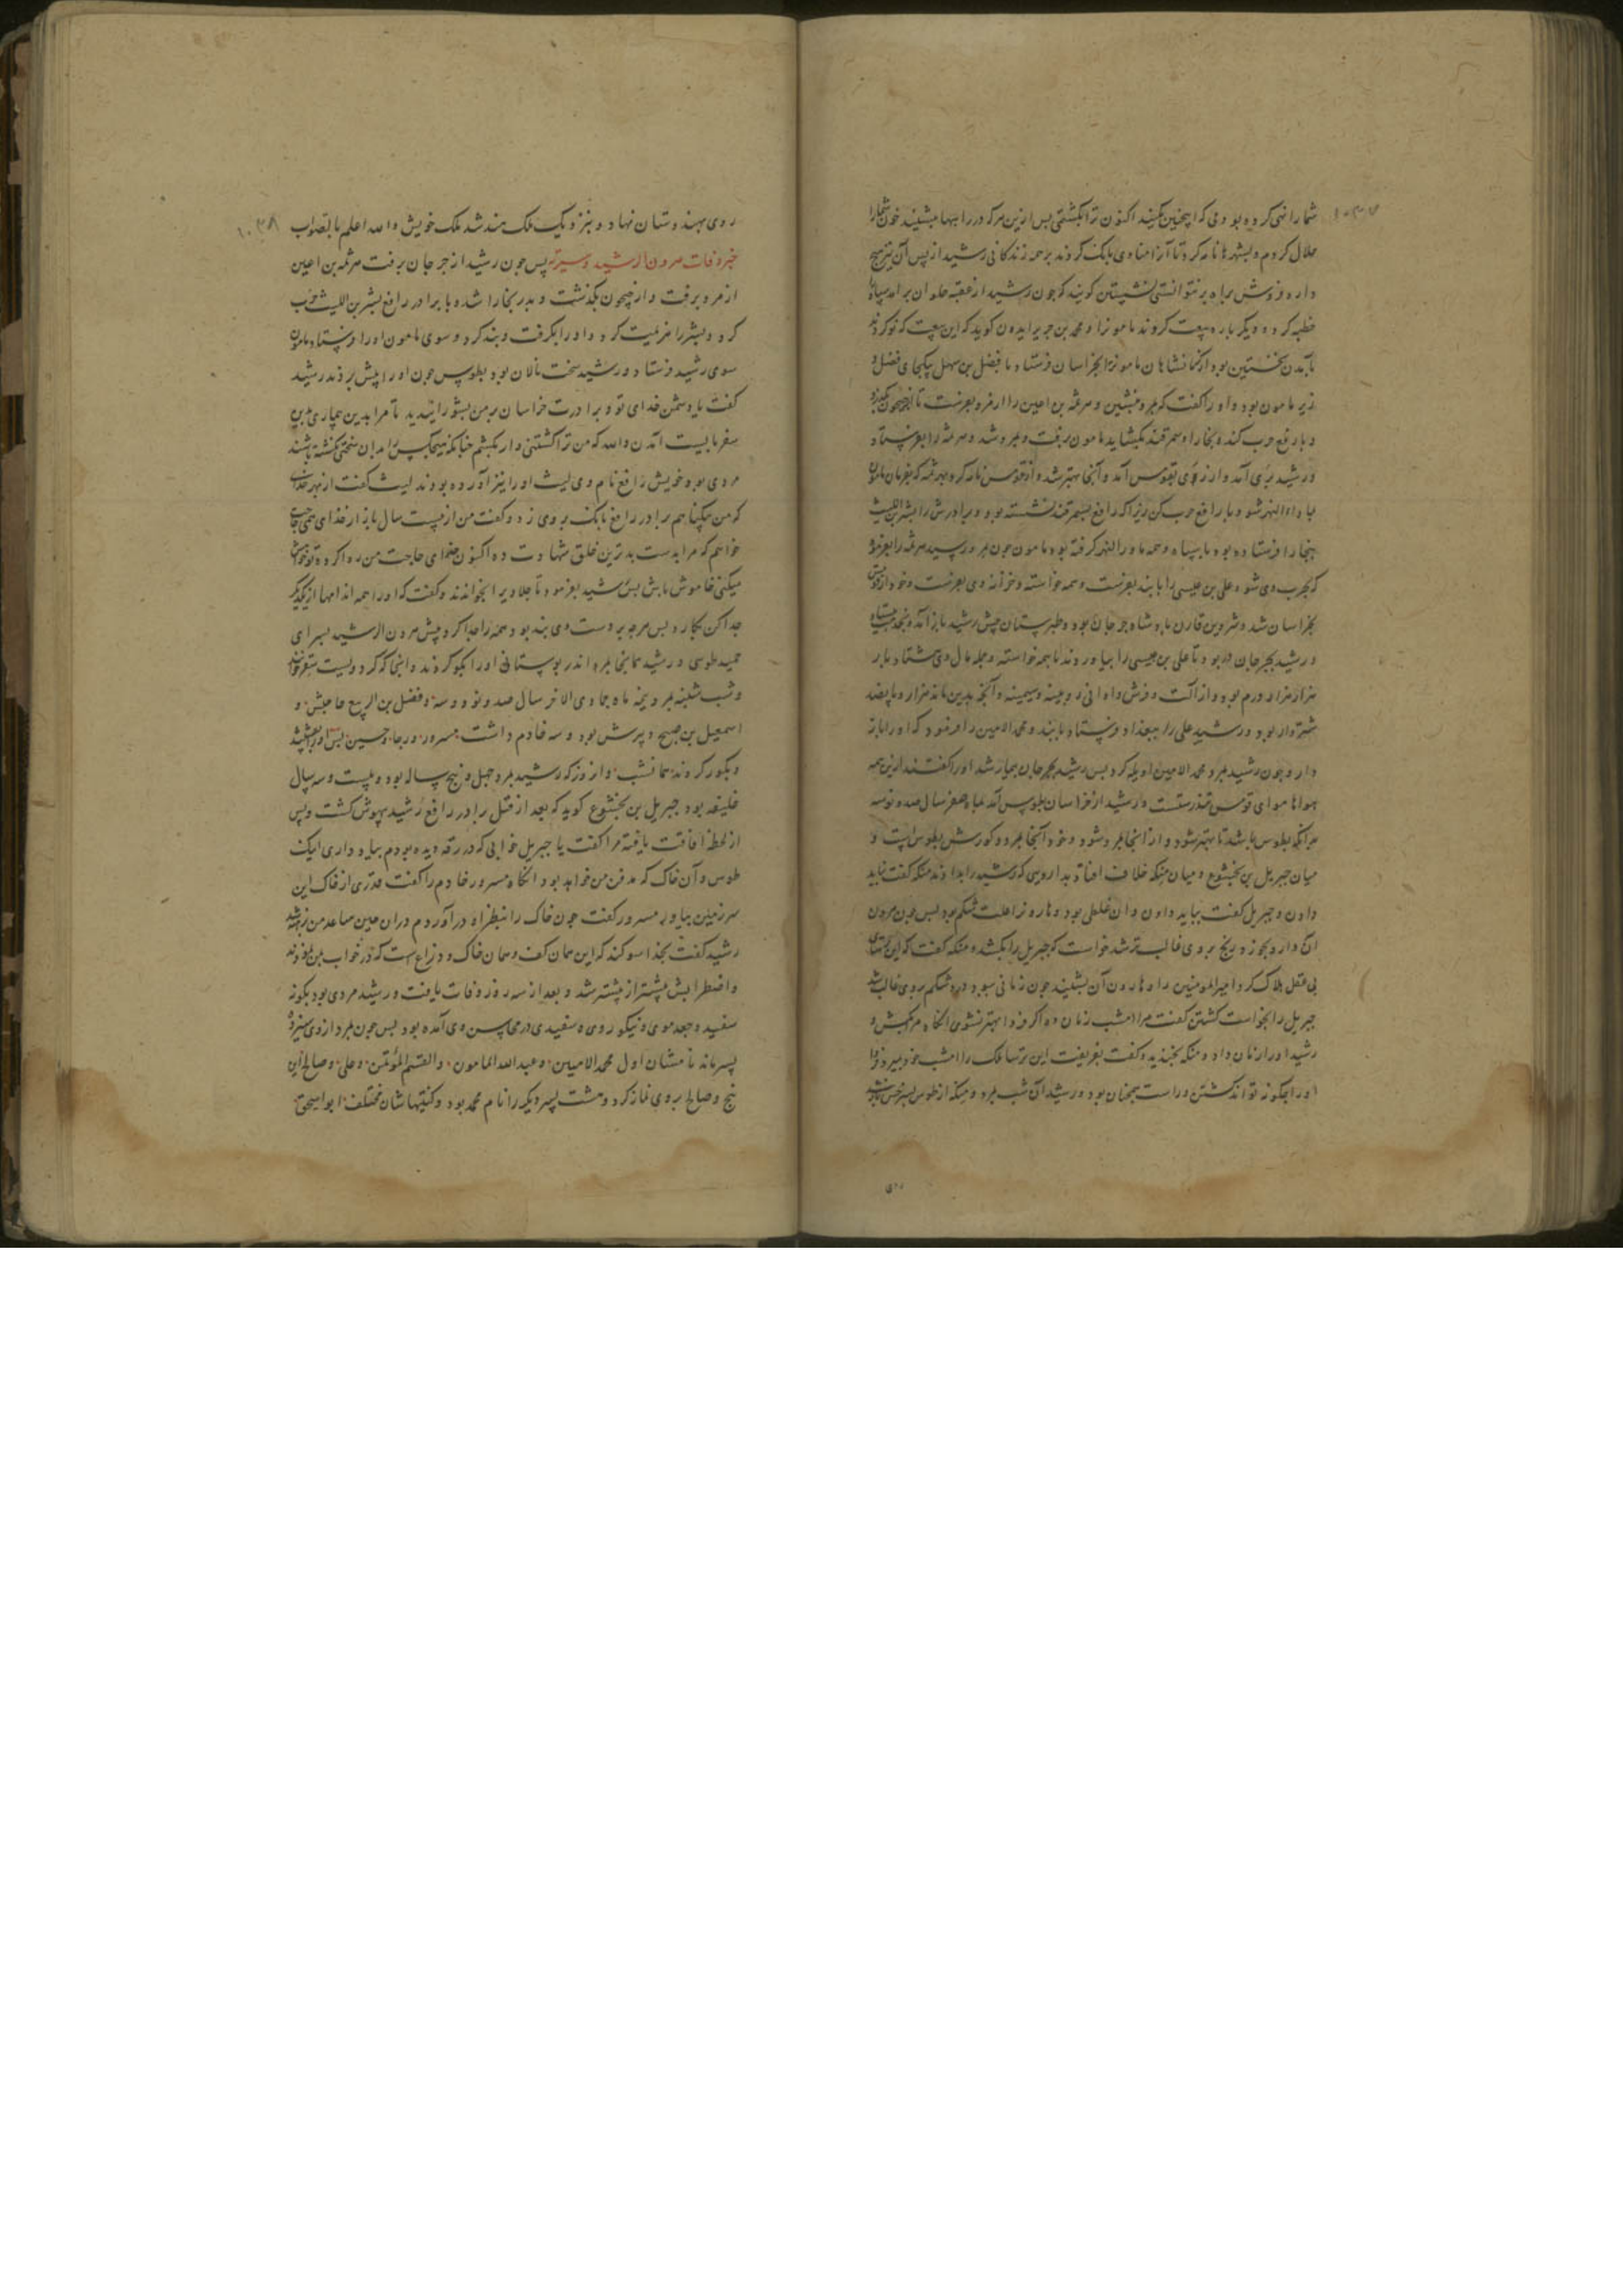 ۱۰۳۷
شما را نهی کرده بودی که اینچنین نکنید اکنون ترا نکشتمی پس ازین هر که در راهها نشیند خون شما را
حلال کردم و بشهرها نامه کرد تا آنرا منادی بانک کردند بر همه زندگانی رشید از پس آن نیز هیچ
داروفروش براه بر نتوانستی نشستن گویند که چون رشید از عقبه حلوان برآمد سپاه را
خطبه کرد و دیگر باره بیعت کردند مامون را و محمد بن جریر ایدون گوید که این بیعت که نو کردند
بآمدن نخستین بود از کرمانشاهان مامون را بخراسان فرستاد با فضل بن سهل بیکجای فضل و
زیر مامون بود و او را گفت که بمرو بنشین و هرثمه بن اعین را از مرو بفرست تا از جیحون بگذرد
و با رافع حرب کند و بخارا و سمرقند بگشاید مامون برفت و بمرو شد و هرثمه را بفرستاد
و رشید بری آمد و از ری بقومس آمد و آنجا بهتر شد و از قومس نامه کرد بهرثمه که بفرمان مامون
با ماوراءالنهر شو و با رافع حرب کن زیرا که رافع بسمرقند نشسته بود و برادرش را بشر بن اللیث
ببخارا فرستاده بود با سپاه و همه ماوراءالنهر گرفته بود مامون چون بمرو رسید هرثمه را بفرمود
که بحرب وی شو و علی بن عیسی را با بند بفرست و همه خواسته و خزانه وی بفرست و خود از قومس
بخراسان شد و شروین قارن پادشاه جرجان بود و طبرستان پیش رشید باز آمد و بخدمت بیستاد
و رشید بجرجان در بود تا علی بن عیسی را بیاوردند با همه خواسته و جمله مال وی هشتاد بار
هزار هزار درم بود و از آلت و فرش و اوانی زرینه و سیمینه و آنچه بدین ماند هزار و پانصد
شتروار بود و رشید علی را ببغداد فرستاد با بند و محمد الامین را فرمود که او را باز
دار و چون رشید بمرد محمد الامین او یله کرد پس رشید بجرجان بیمار شد او را گفتند ازین همه
هواها هوای طوس تندرستست و رشید از خراسان بطوس آمد بماه صفر سال صد و نود و سه
بر آنکه بطوس باشد تا بهتر شود و از آنجا بمرو شود و خود آنجا بمرد و گورش بطوس است و
میان جبریل بن بختیشوع و میان منکه خلاف افتاد بداروی که رشید را بدادند منکه گفت نباید
دادن و جبریل گفت بباید دادن و آن غلطی بود و هارون را علت شکم بود پس چون هرون
آن دارو بخورد رنج بر وی غالب‌تر شد خواست که جبریل را بکشد و منکه گفت که این
بی عقل هلاک کرد امیرالمومنین را و هارون آن بشنید چون زمانی ببود درد شکم بر وی غالب شد
جبریل را بخواست کشتن گفت مرا امشب زمان ده اگر فردا بهتر نشوی آنگاه مرا بکش و
رشید او را زمان داد و منکه بخندید و گفت بفریفت این ترسا ملک را امشب خود بمیرد فردا
او را چگونه تواند کشتن و راست همچنان بود و رشید آن شب بمرد و منکه از طوس بسرخس باز شد
روی
۱۰۳۸
روی بهندوستان نهاد و بنزدیک ملک هند شد ملک خویش والله اعلم بالصواب
خبر وفات هرون الرشید و سیرته پس چون رشید از جرجان برفت هرثمه بن اعین
از مرو برفت و از جیحون بگذشت و بدر بخارا شد و با برادر رافع بشر بن اللیث حرب
کرد و بشر را هزیمت کرد و او را بگرفت و بند کرد و سوی مامون او را فرستاد مامون
سوی رشید فرستاد و رشید سخت نالان بود بطوس چون او را پیش بردند رشید
گفت یا دشمن خدای تو و برادرت خراسان بر من بشورانیدید تا مرا بدین بیماری بدین
سفر بایست آمدن والله که من ترا کشتنی دار بکشم چنانکه هیچکس را بدان سختی نکشته باشند
مردی بود خویش رافع نام وی لیث او را نیز آورده بودند لیث گفت از بهر خدای
که من بیگناهم برادر رافع بانک بر وی زد و گفت من از بیست سال باز از خدای همی حاجت
خواهم که مرا بدست بدترین خلق شهادت ده اکنون خدای حاجت من روا کرد تو خواهش
میکنی خاموش باش پس رشید بفرمود تا جلاد بر آنجا خواندند و گفت که او را همه اندامها از یکدیگر
جدا کن بکارد پس هر چه بر دست وی بند بود همه را جدا کرد پیش هرون الرشید بسرای
حمید طوسی و رشید همانجا بمرد اندر بوستانی او را بگور کردند و آنجا که گور وی است
و شب شنبه بمرد نیمه ماه جمادی الاخر سال صد و نود و سه و فضل بن الربیع حاجبش و
اسمعیل بن صبیح دبیرش بود و سه خادم داشت مسرور و رجا و حسین پس او را بشستند
و بگور کردند همانشب و آن روز که رشید بمرد چهل و پنج ساله بود و بیست و سه سال
خلیفه بود جبریل بن بختیشوع گوید که بعد از قتل برادر رافع رشید بیهوش گشت و پس
از لحظه افاقت یافته مرا گفت یا جبریل خوابی که در رقه دیده بودم بیاد داری اینک
طوس و آن خاک که مدفن من خواهد بود آنگاه مسرور خادم را گفت قدری از خاک این
سرزمین بیاور مسرور گفت چون خاک را بنظر او درآوردم در آن حین ساعد من برهنه شد
رشید گفت بخدا سوگند که این همان کف و همان خاک و ذراع است که در خواب بمن نمودند
و اضطرابش بیشتر از پیشتر شد و بعد از سه روز وفات یافت و رشید مردی بود بگونه
سفید و جعد موی و نیکو روی و سفیدی در محاسن وی آمده بود پس چون بمرد از وی سیزده
پسر ماند نامشان اول محمد الامین و عبدالله المامون و القسم المؤتمن و علی و صالح این
پنج و صالح بر وی نماز کرد و هشت پسر دیگر را نام محمد بود و کنیتهاشان مختلف ابواسحق